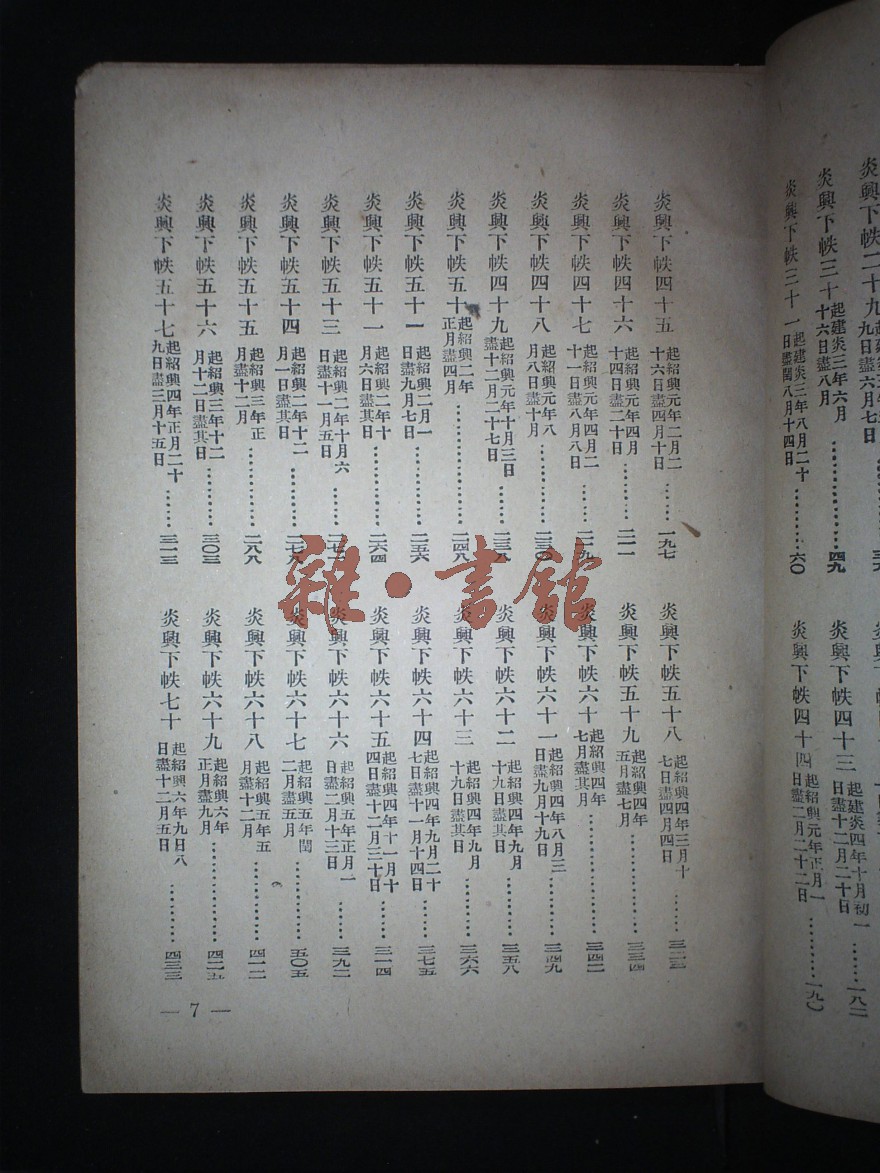 炎興下帙二十九
炎興下帙三十 起建炎三年六月十六日盡八月 四九
炎興下帙三十一 起建炎三年八月二十日盡閏八月十四日 六〇
炎興下帙四十三 起建炎四年十月初一日盡十二月二十日 一八二
炎興下帙四十四 起紹興元年正月一日盡二月二十二日 一九〇
炎興下帙四十五 起紹興元年二月二十六日盡四月十日 一九七
炎興下帙四十六 起紹興元年四月十四日盡二十日 二一一
炎興下帙四十七 起紹興元年四月二十一日盡八月八日 二一九
炎興下帙四十八 起紹興元年八月八日盡十月 二三〇
炎興下帙四十九 起紹興元年十月三日盡十二月二十七日
炎興下帙五十 起紹興二年正月盡四月 二四八
炎興下帙五十一 起紹興二月一日盡九月七日 二五六
炎興下帙五十一 起紹興二年十月六日盡其日 二六四
炎興下帙五十三 起紹興二年十月六日盡十一月五日
炎興下帙五十四 起紹興二年十二月一日盡其日 二七八
炎興下帙五十五 起紹興三年正月盡十二月 二八八
炎興下帙五十六 起紹興三年十二月十二日盡其日 三〇三
炎興下帙五十七 起紹興四年正月二十九日盡三月十五日 三一三
炎興下帙五十八 起紹興四年三月十七日盡四月四日
炎興下帙五十九 起紹興四年五月盡七月 三三四
炎興下帙六十 起紹興四年七月盡其月 三四二
炎興下帙六十一 起紹興四年八月三日盡九月十九日 三四九
炎興下帙六十二 起紹興四年九月十九日盡其日 三五八
炎興下帙六十三 起紹興四年九月十九日盡其日 三六六
炎興下帙六十四 起紹興四年九月二十七日盡十一月十四日 三七五
炎興下帙六十五 起紹興四年十一月十四日盡十二月三十日 三一四
炎興下帙六十六 起紹興五年正月一日盡二月十三日 三九二
炎興下帙六十七 起紹興五年閏二月盡五月 五〇五
炎興下帙六十八 起紹興五年五月盡十二月 四一二
炎興下帙六十九 起紹興六年正月盡九月 四二九
炎興下帙七十 起紹興六年九日八日盡十二月五日 四三三
— 7 —
雜·書館